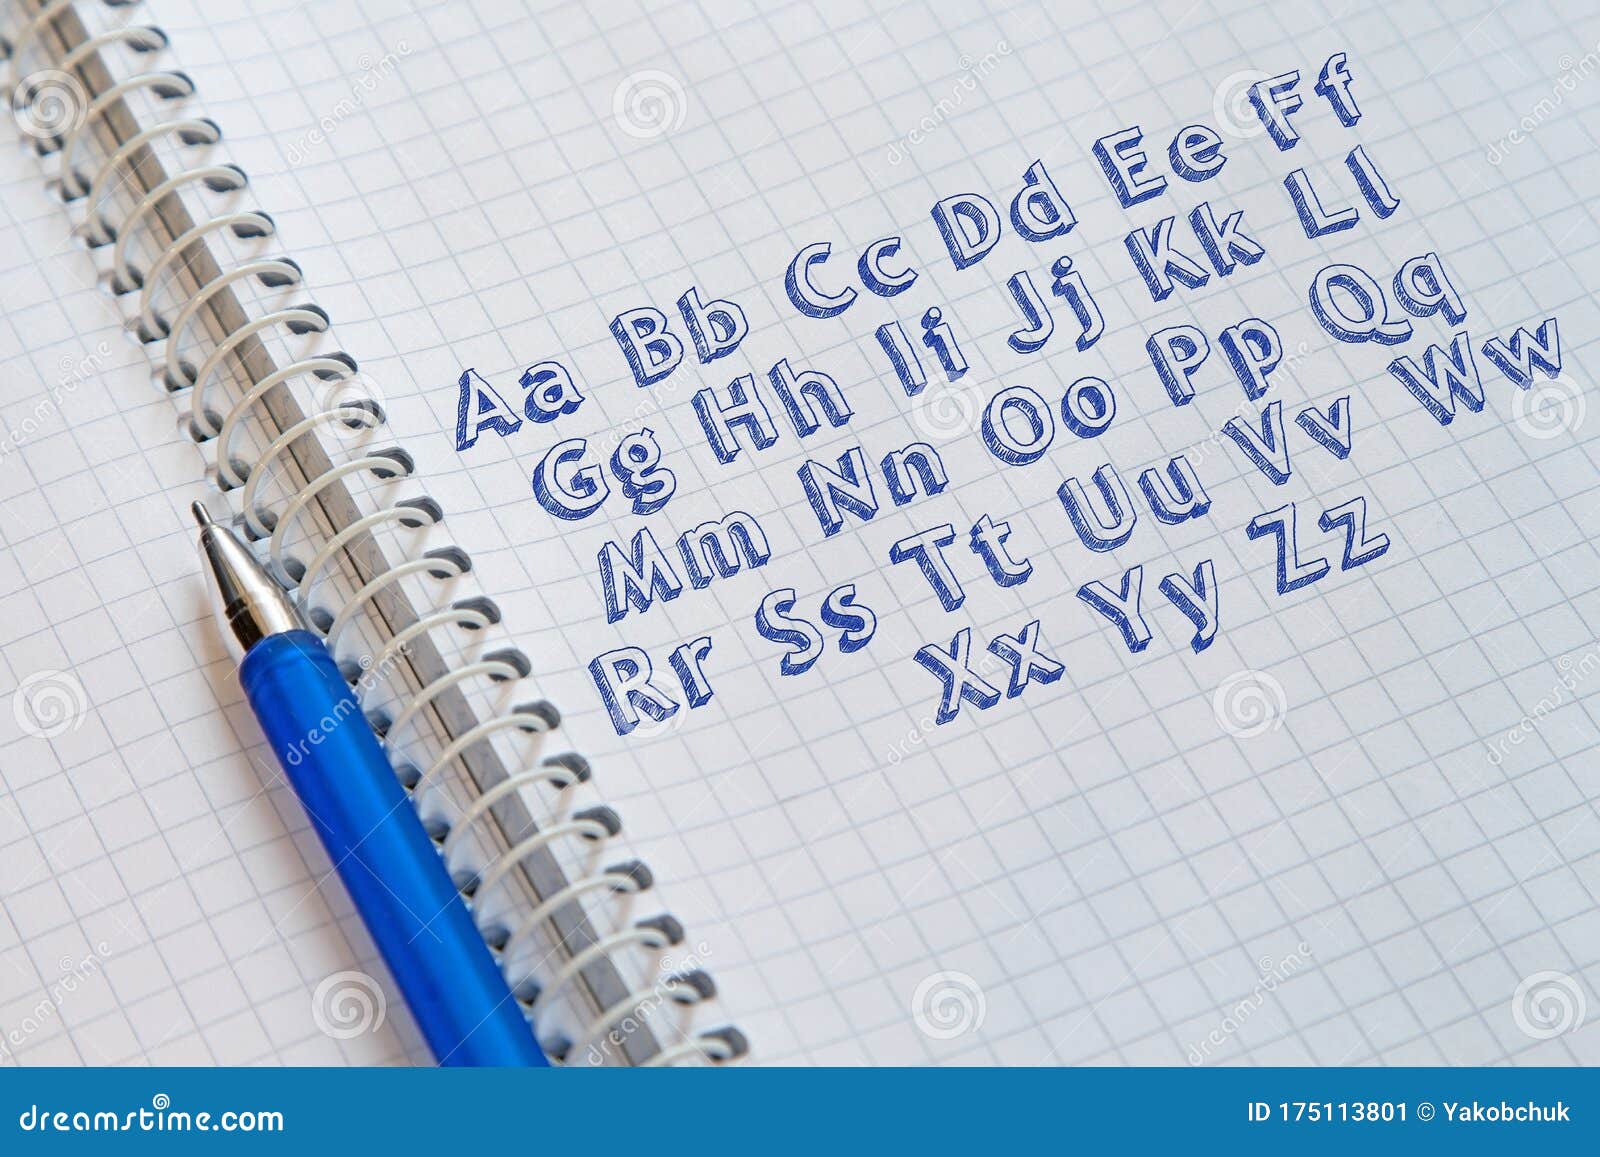 Aa Bb Cc Dd Ee Ff
Gg Hh Ii Jj Kk Ll
Mm Nn Oo Pp Qq
Rr Ss Tt Uu Vv Ww
Xx Yy Zz
dreamstime.com
ID 175113801 © Yakobchuk